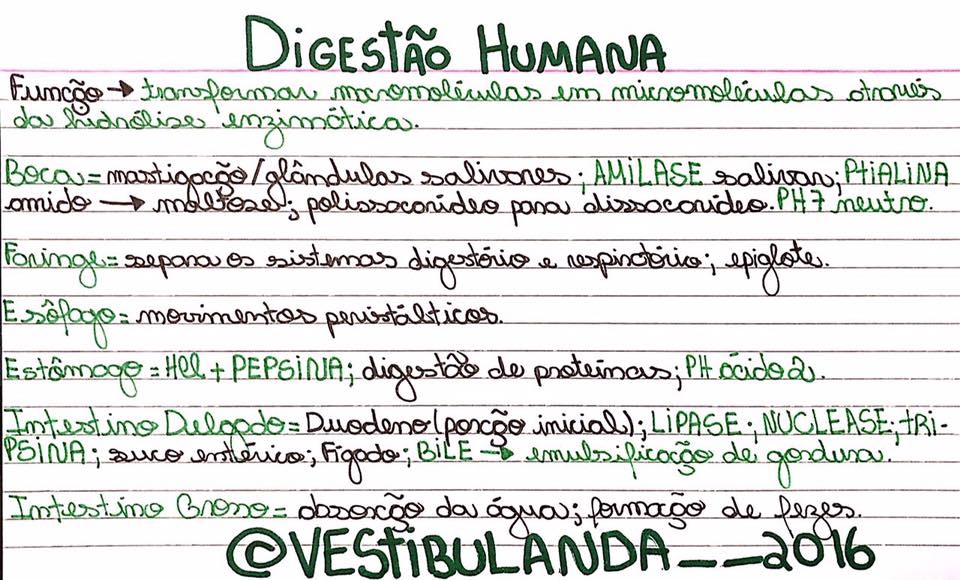 DIGESTÃO HUMANA
Função → transformar macromoléculas em micromoléculas através
da hidrólise enzimática.
Boca = mastigação/glândulas salivares; AMILASE salivar; PTIALINA
amido → maltose; polissacarídeo para dissacarídeo. PH 7 neutro.
Faringe = separa os sistemas digestório e respiratório; epiglote.
Esôfago = movimentos peristálticos.
Estômago = HCl + PEPSINA; digestão de proteínas; PH ácido 2.
Intestino Delgado = Duodeno (porção inicial); LIPASE; NUCLEASE; tRI-
PSINA; suco entérico; Fígado; BILE → emulsificação de gordura.
Intestino Grosso = absorção da água; formação de fezes.
@VEStiBULANDA__2016